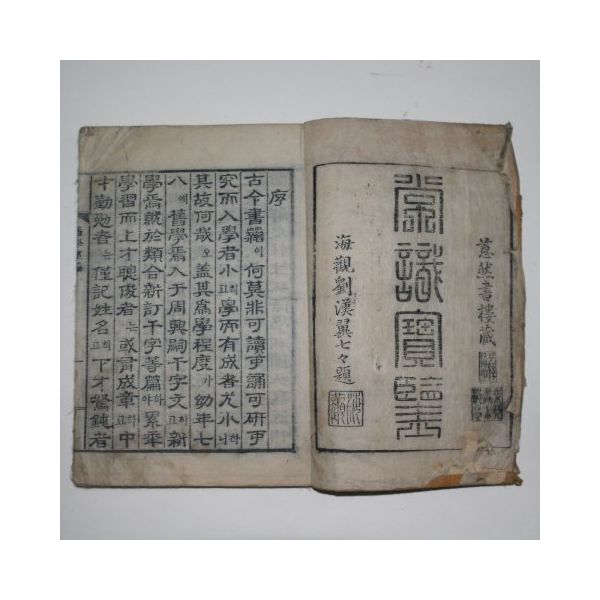 書樓藏
常識寶鑑
海觀劉漢翼七々題
序
古今書籍이何莫非可讀可誦可硏可
究而入學者小하고學而有成者尤小하니
其故何哉오盖其爲學程度가幼年七
八에舊學焉入于周興嗣千字文하고新
學焉就於類合新訂千字等篇하야累年
學習而上才聰俊者는或冐成章하고中
才勤勉者는僅記姓名하고下才駑鈍者